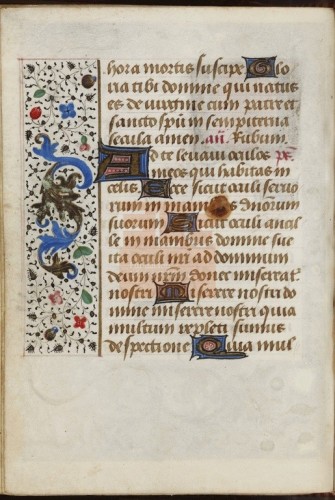 hora mortis suscipe Glo
ria tibi domine qui natus
es de virgine cum patre et
sancto spū in sempiterna
secula amen. añ. Rubum.
Ad te levavi oculos ps̄
meos qui habitas in
celis. Ecce sicut oculi servo
rum in manibus dñorum
suorum Sicut oculi ancil
le in manibus domine sue
ita oculi nr̄i ad dominum
deum nrm̄ donec misereat.
nostri Miserere nostri do
mine miserere nostri quia
multum repleti sumus
despectione Quia mul